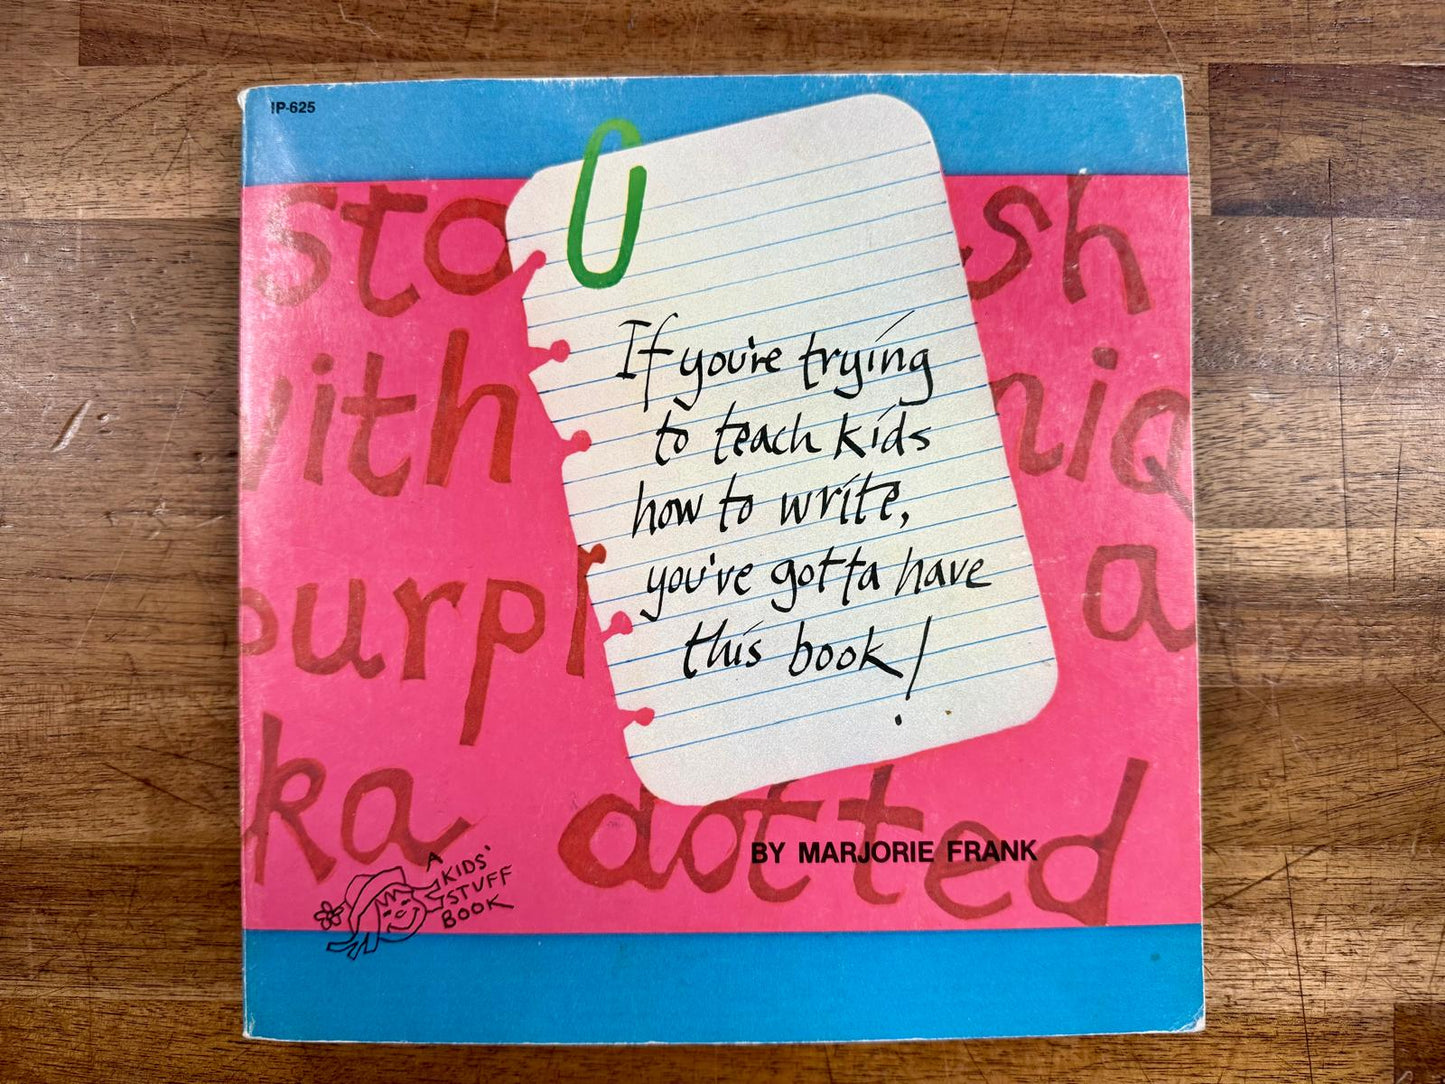 IP-625
If you're trying
to teach kids
how to write,
you've gotta have
this book!
with
ka dotted
a
BY MARJORIE FRANK
A
KIDS'
STUFF
BOOK